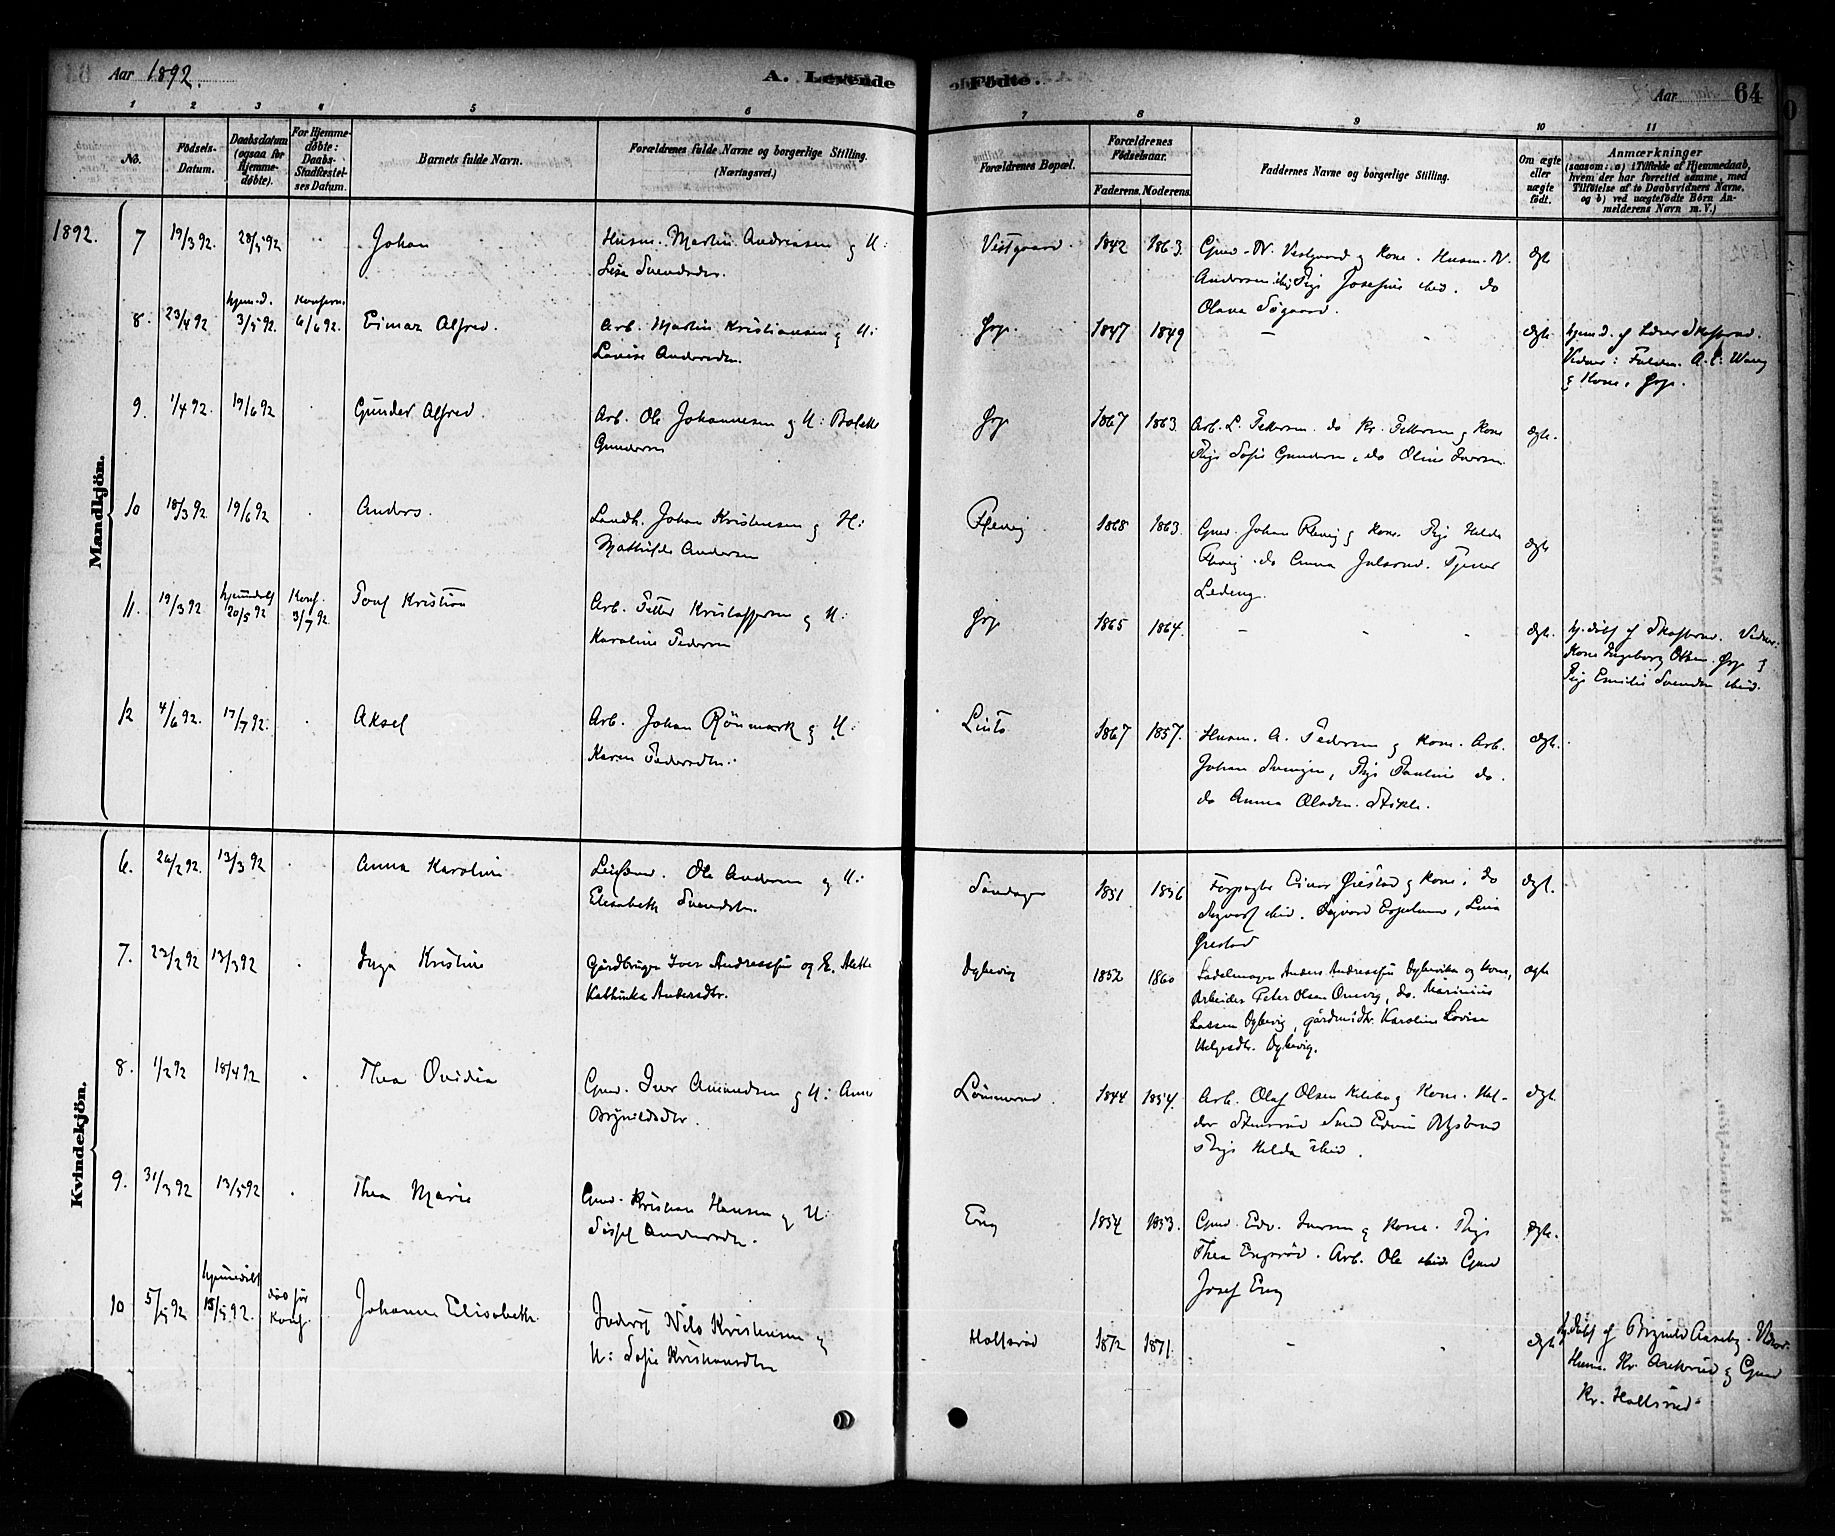 Aar 1892.
A. Levende
Födte.
Aar
64
1 2 3 4 5 6 7 8 9 10 11
No.
Födsels-
Datum.
Daabsdatum
(ogsaa for
Hjemme-
döbte).
For Hjemme-
döbte:
Daabs-
Stadfæstel-
ses Datum.
Barnets fulde Navn.
Forældrenes fulde Navne og borgerlige Stilling.
(Næringsvei.)
Forældrenes Bopæl.
Forældrenes
Födselsaar.
Faderens. Moderens.
Faddernes Navne og borgerlige Stilling.
Om ægte
eller
uægte
födt.
Anmærkninger
(saasom: a) i Tilfælde af Hjemmedaab,
hvem der har forrettet samme, med
Tilföielse af to Daabsvidners Navne,
og b) ved uægtefödte Börn An-
melderens Navn m. V.)
Mandkjön.
1892.
7 19/3 92 28/5 92 Johan
Husm. Martin Andreasen og H:
Lisa Svendsdtr.
Vestgaard. 1842 1863.
Gmd. N. Vestgaard og Kone. Husm. N.
Andersen ibid, Pige Josefine ibid. do
Olava Søgaard.
ægte
8. 23/4 92 hjemd. 3/5 92. Konfirm. 6/6 92. Einar Alfred.
Arb. Martin Kristiansen og H:
Lovise Andersdtr.
Ørje. 1847 1849 -
ægte.
hjemd. af Lærer Skofsrud.
Vidner: Fuldm. A. C. Wang
og Kone, Ørje.
9. 1/4 92. 19/6 92 Gunder Alfred.
Arb. Ole Johannesen og H: Bolette
Gundersen
Ørje 1867 1863.
Arb. L. Pettersen. do Kr. Pettersen og Kone
Pige Sofie Gundersen, do Oline Iversen.
ægte.
10 18/3 92. 19/6 92 Anders.
Landh. Johan Kristensen og H:
Mathilde Andersen
Flevig 1868 1863.
Gmd. Johan Flevig og Kone. Pige Hilda
Flevig. do Anna Julsrud. Tjener
ægte
11. 19/3 92 hjemdøbt 20/5 92 Konf. 3/7 92. Kristian
Arb. Petter Kristoffersen og H:
Karoline Pedersen
Ørje 1865 1864. -
ægte.
hj. døbt af Skofsrud. Vidner:
Kone Ingeborg Olsen. Ørje og
Pige Emilie Svendsen ibid.
12 4/6 92. 17/7 92. Aksel
Arb. Johan Rönmark og H:
Karen Pedersdtr.
Linto 1867 1857.
Husm. A. Pedersen og Kone. Arb.
Johan, Pige Pauline do.
do Anna Olsdtr.
ægte.
Kvindekjön.
6. 26/2 92. 13/3 92 Anna Karoline
Ole Andersen og H:
Elisabeth Svendsdtr.
1851 1856
Forpagter Einar Ørestad og Kone, do
Sigvart ibid. Sigvard, Lina
Ørestad
ægte.
7. 22/2 92 13/3 92 Inga Kristine
Gårdbruger Iver Andreassen og H. Mette
Kathinka Andersdtr.
Dybevig 1852 1860
Sadelmager Anders Andreassen Dybevika og Kone,
Arbeider Peter Olsen, do. Marinius
Lassen Dybevig, gårdmdtr. Karoline Lovise
Helgesdtr. Dybevig.
ægte
8. 1/2 92 18/4 92 Thea Ovidia
Gmd. Iver Amundsen og H: Anne
Brynildsdtr.
Lömmerud. 1844 1854.
Arb. Olaf Olsen og Kone. Hal-
dor Smed Edvin
Pige Hilda ibid.
ægte
9. 31/3 92 13/5 92 Thea Marie
Gmd. Kristian Hansen og H:
Sissel Andersdtr.
Eng 1854 1853.
Gmd. Edv. Iversen og Kone. Pige
Thea Engsröd. Arb. Ole ibid. Gmd
Josef Eng
ægte.
10 5/5 92 hjemmedøbt 15/5 92. död før Konf. Johanne Elisabeth
Inderst Nils Kristensen og
H: Sofie Kristiansdtr
Holtsröd 1872 1871. -
ægte
hj. döbt af Brynild Aaseby. Vidner.
Husm. Kr. og Gmd
Kr. Holtsröd